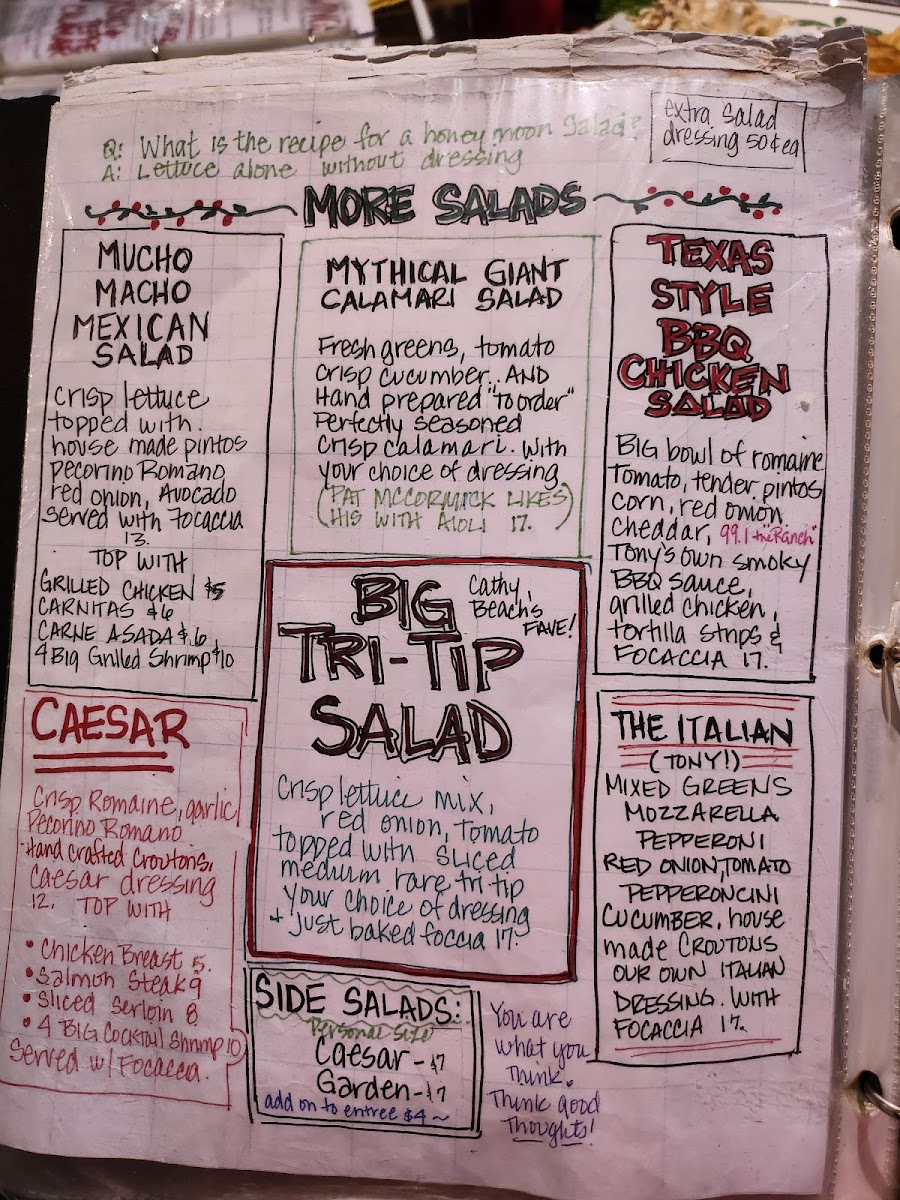 Q: What is the recipe for a honeymoon salad?
A: Lettuce alone without dressing
extra salad
dressing 50¢ ea
MORE SALADS
MUCHO
MACHO
MEXICAN
SALAD
Crisp lettuce
topped with.
house made pintos
Pecorino Romano
red onion, Avocado
Served with Focaccia
13.
TOP WITH
GRILLED CHICKEN $5
CARNITAS $6
CARNE ASADA $6
4 Big Grilled Shrimp $10
MYTHICAL GIANT
CALAMARI SALAD
Fresh greens, tomato
Crisp cucumber.. AND
Hand prepared "to order"
Perfectly seasoned
Crisp calamari. With
your choice of dressing
(PAT MCCORMICK LIKES
HIS WITH AIOLI 17.)
TEXAS
STYLE
BBQ
CHICKEN
SALAD
BIG bowl of romaine
Tomato, tender pintos
corn, red onion
cheddar, 99.1 the "Ranch"
Tony's own smoky
BBQ sauce,
grilled chicken,
tortilla strips &
FOCACCIA 17.
BIG
TRI-TIP
SALAD
Cathy
Beach's
FAVE!
Crisp lettuce mix,
red onion, Tomato
topped with sliced
medium rare tri tip
your choice of dressing
+ just baked foccia 17.
CAESAR
Crisp Romaine, garlic
Pecorino Romano
Hand Crafted Croutons,
Caesar dressing
12. TOP WITH
• Chicken Breast 5.
• Salmon Steak 9
• Sliced Serloin 8
• 4 BIG COCKTAIL Shrimp 10
Served w/ Focaccia.
THE ITALIAN
(TONY!)
MIXED GREENS
MOZZARELLA
PEPPERONI
RED ONION, TOMATO
PEPPERONCINI
CUCUMBER, house
made CROUTONS
OUR OWN ITALIAN
DRESSING. WITH
FOCACCIA 17.
SIDE SALADS:
Personal Size
Caesar - $7
Garden - $7
add on to entree $4 ~
You are
what you
Think.
Think good
Thoughts!